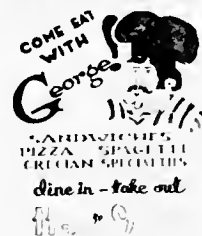 COME EAT
WITH
George!
SANDWICHES
PIZZA SPAGETTI
GRECIAN SPECIALTIES
dine in - take out